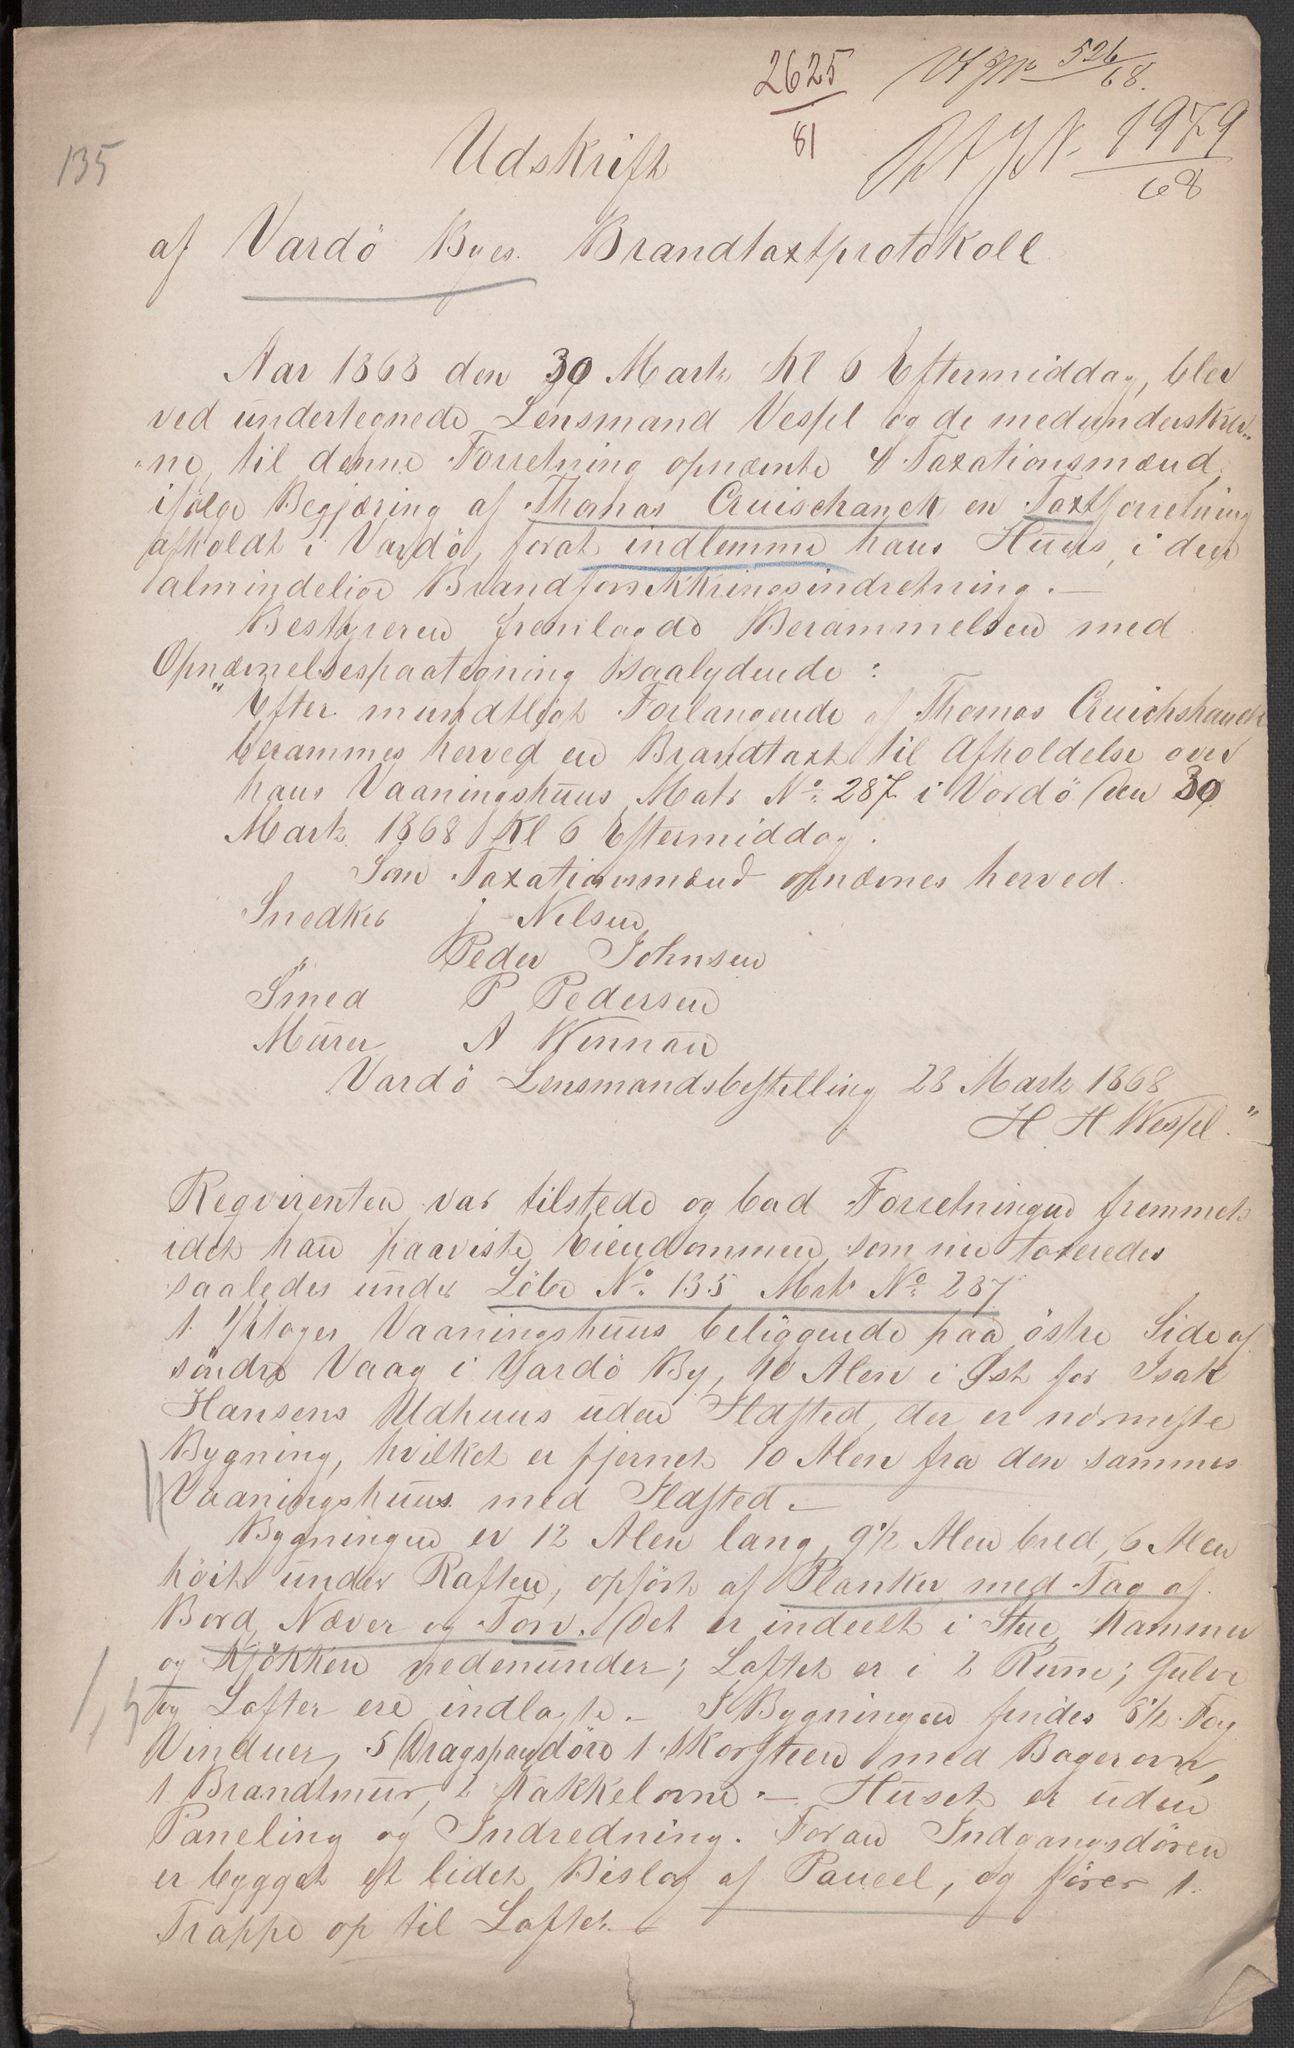 2625
81
526
68.
1979
68
135
Udskrift
af Vardö Byes Brandtaxtprotokoll
Aar 1868 den 30 Marts Kl 6 Eftermiddag, blev
ved undertegnede Lensmand Vessel og de medunderskrev-
ne, til denne Forretning opnævnte 4 Taxationsmænd,
ifølge Begjæring af Thomas Cruischanck en Taxtforretning
afholdt i Vardö, forat indlemme hans Huus i den
almindelige Brandforsikkringsindretning. —
Bestyreren fremlagde Berammelsen med
Opnævnelsespaategning saalydende:
"Efter mundtligt Forlangende af Thomas Cruichshanck
berammes herved en Brandtaxt til Afholdelse over
hans Vaaningshuus Matr No. 287 i Vardö den 30
Marts 1868 Kl 6 Eftermiddag.
Som Taxationsmænd opnævnes herved.
Snedker J Nilsen
Peder Johnsen
Smed P Pedersen
Murer A Wennan
Vardö Lensmandsbestilling 28 Marts 1868
H H Wessel."
Reqvirenten var tilstede og bad Forretningen fremmet
idet han paaviste Eiendommen, som nu taxeredes
saaledes under Löbe No. 135 Matr No 287
1. 1/2 Etages Vaaningshuus beliggende paa östre Side af
söndre Vaag i Vardö By, 10 Alen i Øst for Isak
Hansens Udhuus uden Ildsted, der er nærmeste
Bygning, hvilket er fjernet 10 Alen fra den sammes
Vaaningshuus med Ildsted. —
Bygningen er 12 Alen lang, 9 1/2 Alen bred, 6 Alen
höit under Raften, opfört af Planker med Tag af
Bord, Næver og Torv. Det er indeelt i Stue, Kammer
og Kjökken nedenunder; Loftet er i 2 Rum; Gulve
og Lofter ere indlagte. — I Bygningen findes 8 1/2 Fag
Vinduer, 5 Dragspandöre 1 Skorsteen med Bagerovn,
1 Brandmur, 2 Kakkelovne. — Huset er uden
Paneling og Indredning. Foran Indgangsdören
er bygget et lidet Bislag af Paneel, og förer 1.
Trappe op til Loftet. —